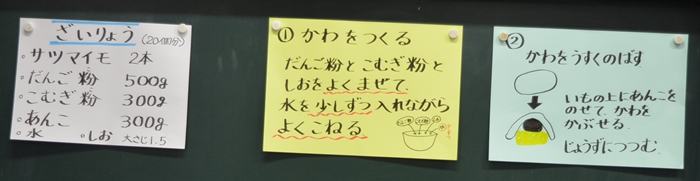 ざいりょう (20個分)
・サツマイモ 2本
・だんご粉 500g
・こむぎ粉 300g
・あんこ 300g
・水 ・しお 大さじ1.5
① かわをつくる
だんご粉とこむぎ粉と
しおをよくまぜて、
水を少しずつ入れながら
よくこねる
②
かわをうすくのばす
いもの上にあんこを
のせて、かわを
かぶせる。
じょうずにつつむ。